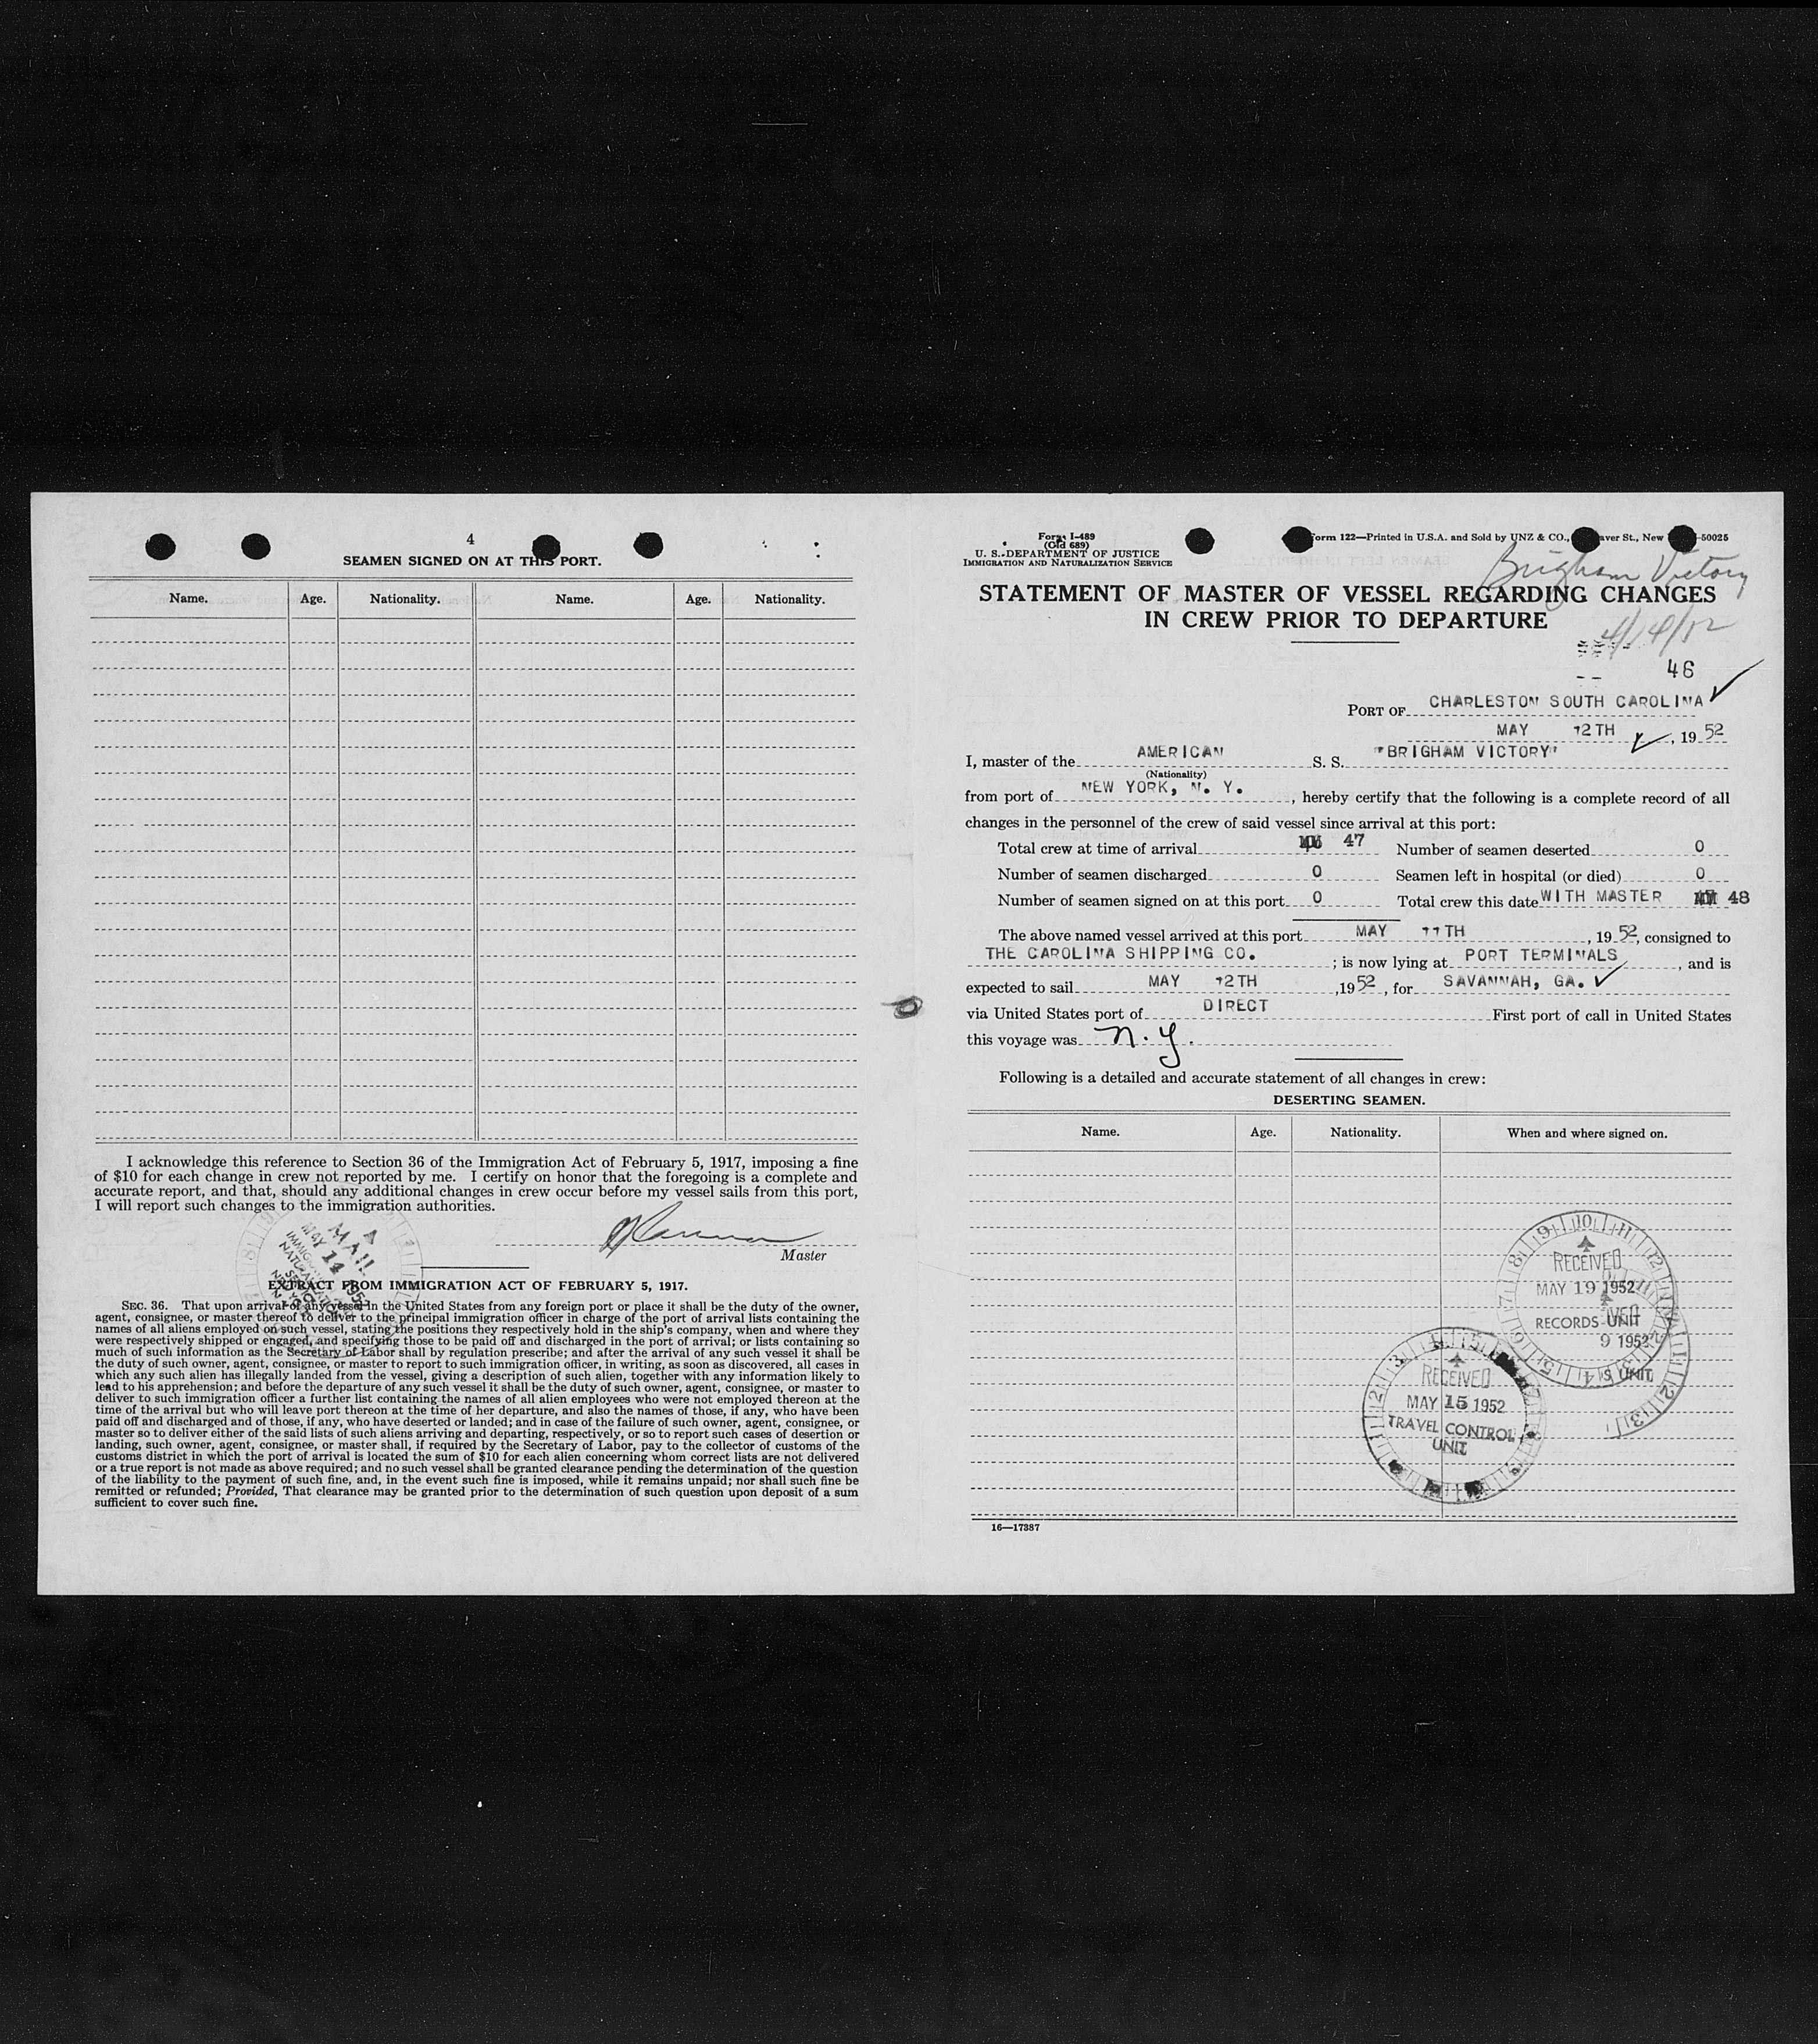 4
SEAMEN SIGNED ON AT THIS PORT.
Name. Age. Nationality. Name. Age. Nationality.
I acknowledge this reference to Section 36 of the Immigration Act of February 5, 1917, imposing a fine
of $10 for each change in crew not reported by me. I certify on honor that the foregoing is a complete and
accurate report, and that, should any additional changes in crew occur before my vessel sails from this port,
I will report such changes to the immigration authorities.
Master
MAIL
MAY 14 1952
EXTRACT FROM IMMIGRATION ACT OF FEBRUARY 5, 1917.
SEC. 36. That upon arrival of any vessel in the United States from any foreign port or place it shall be the duty of the owner,
agent, consignee, or master thereof to deliver to the principal immigration officer in charge of the port of arrival lists containing the
names of all aliens employed on such vessel, stating the positions they respectively hold in the ship's company, when and where they
were respectively shipped or engaged, and specifying those to be paid off and discharged in the port of arrival; or lists containing so
much of such information as the Secretary of Labor shall by regulation prescribe; and after the arrival of any such vessel it shall be
the duty of such owner, agent, consignee, or master to report to such immigration officer, in writing, as soon as discovered, all cases in
which any such alien has illegally landed from the vessel, giving a description of such alien, together with any information likely to
lead to his apprehension; and before the departure of any such vessel it shall be the duty of such owner, agent, consignee, or master to
deliver to such immigration officer a further list containing the names of all alien employees who were not employed thereon at the
time of the arrival but who will leave port thereon at the time of her departure, and also the names of those, if any, who have been
paid off and discharged and of those, if any, who have deserted or landed; and in case of the failure of such owner, agent, consignee, or
master so to deliver either of the said lists of such aliens arriving and departing, respectively, or so to report such cases of desertion or
landing, such owner, agent, consignee, or master shall, if required by the Secretary of Labor, pay to the collector of customs of the
customs district in which the port of arrival is located the sum of $10 for each alien concerning whom correct lists are not delivered
or a true report is not made as above required; and no such vessel shall be granted clearance pending the determination of the question
of the liability to the payment of such fine, and, in the event such fine is imposed, while it remains unpaid; nor shall such fine be
remitted or refunded; Provided, That clearance may be granted prior to the determination of such question upon deposit of a sum
sufficient to cover such fine.
Form I-489
(Old 689)
U. S. DEPARTMENT OF JUSTICE
IMMIGRATION AND NATURALIZATION SERVICE
orm 122—Printed in U.S.A. and Sold by UNZ & CO., aver St., New —50025
Brigham Victory
STATEMENT OF MASTER OF VESSEL REGARDING CHANGES
IN CREW PRIOR TO DEPARTURE
46
PORT OF CHARLESTON SOUTH CAROLINA
MAY 12TH, 1952
I, master of the AMERICAN S. S. "BRIGHAM VICTORY"
(Nationality)
from port of NEW YORK, N. Y., hereby certify that the following is a complete record of all
changes in the personnel of the crew of said vessel since arrival at this port:
Total crew at time of arrival 47 Number of seamen deserted 0
Number of seamen discharged 0 Seamen left in hospital (or died) 0
Number of seamen signed on at this port 0 Total crew this date WITH MASTER 48
The above named vessel arrived at this port MAY 11TH, 1952, consigned to
THE CAROLINA SHIPPING CO.; is now lying at PORT TERMINALS, and is
expected to sail MAY 12TH, 1952, for SAVANNAH, GA.
via United States port of DIRECT First port of call in United States
this voyage was N. Y.
Following is a detailed and accurate statement of all changes in crew:
DESERTING SEAMEN.
Name. Age. Nationality. When and where signed on.
RECEIVED
MAY 19 1952
RECORDS UNIT
9 1952
S UNIT
RECEIVED
MAY 15 1952
TRAVEL CONTROL
UNIT
16—17387